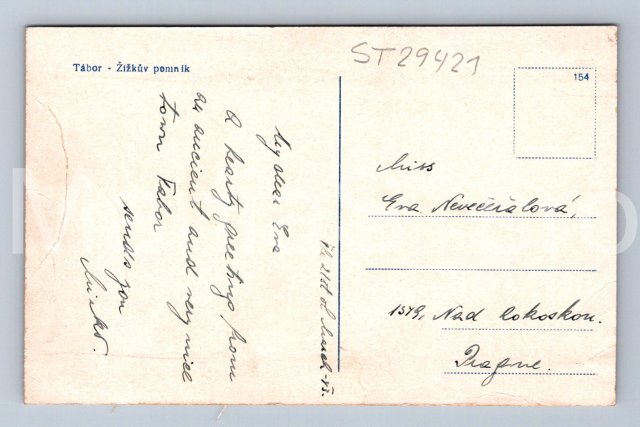 Tábor - Žižkův pomník
ST29421
154
My dear Eva
a hearty greetings from
an ancient and very nice
town Tabor
sends you
Mirko.
21st of March
Miss
Eva Nevečeřalová,
1579, Nad Rokoskou.
Prague.